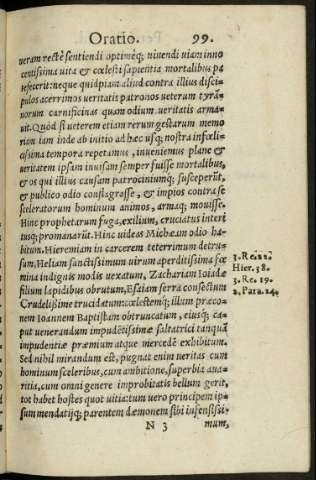 Oratio. 99.
ueram rectè sentiendi optimeq́; uiuendi uiam inno
centissima uita & cœlesti sapientia mortalibus pa
tefecerit: neque quidpiam aliud contra illius disci-
pulos acerrimos ueritatis patronos ueterum tyrã-
norum carnificinas quam odium ueritatis arma-
uit. Quòd si ueterem etiam rerum gestarum memo
riam iam inde ab initio ad hæc usq; nostra infœli-
cissima tempora repetamus, inueniemus plane &
ueritatem ipsam inuisam semper fuisse mortalibus,
& os qui illius causam patrociniumq́; susceperũt,
& publico odio conflagrasse, & impios contra se
sceleratorum hominum animos, armaq́; mouisse.
Hinc prophetarum fuga, exilium, cruciatus interi
tusq́; promanarũt. Hinc uideas Michæam odio ha-
bitum. Hieremiam in carcerem teterrimum detru-
sum. Heliam sanctissimum uirum a perditissima fœ
mina indignis modis uexatum, Zachariam Ioiadæ
filium lapidibus obrutum, Esaiam serra consectum
Crudelissime trucidatum: cœlestemq́; illum præco-
nem Ioannem Baptistam obtruncatum, eiusq́; ca-
put uenerandum impudētissimæ saltatrici tanquã
impudentiæ præmium atque mercedē exhibitum.
Sed nihil mirandum est, pugnat enim ueritas cum
hominum sceleribus, cum ambitione, superbia aua-
ritia, cum omni genere improbitatis bellum gerit,
tot habet hostes quot uitia: tum uero principem ip-
sum mendatijq́; parentem dæmonem sibi infensissi-
N 3 mum,
3. Re. 22.
Hier. 38.
3. Re. 19.
2. Para. 24.